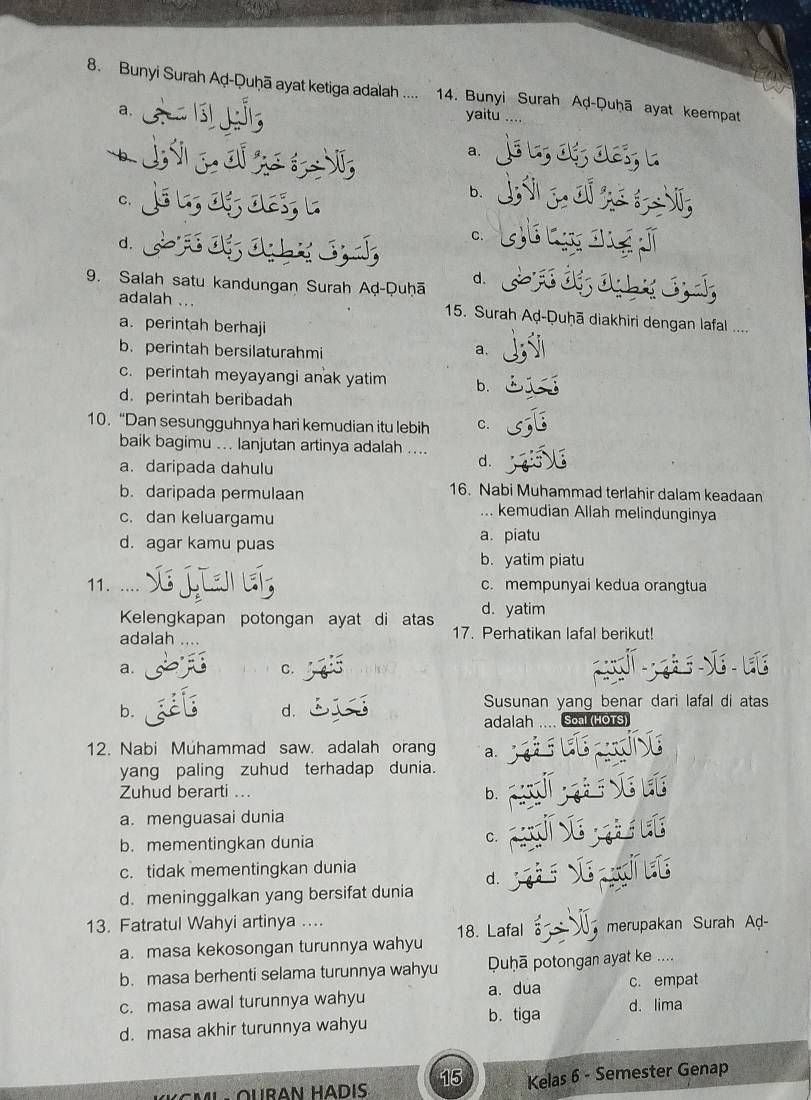 8. Bunyi Surah Aḍ-Ḍuḥā ayat ketiga adalah ....
a. وَالَّيْلِ اِذَا سَجٰى
b. وَلَلْاٰخِرَةُ خَيْرٌ لَّكَ مِنَ الْاُوْلٰى
c. مَا وَدَّعَكَ رَبُّكَ وَمَا قَلٰى
d. وَلَسَوْفَ يُعْطِيْكَ رَبُّكَ فَتَرْضٰى
9. Salah satu kandungan Surah Aḍ-Ḍuḥā
adalah ...
a. perintah berhaji
b. perintah bersilaturahmi
c. perintah meyayangi anak yatim
d. perintah beribadah
10. "Dan sesungguhnya hari kemudian itu lebih
baik bagimu ... lanjutan artinya adalah ....
a. daripada dahulu
b. daripada permulaan
c. dan keluargamu
d. agar kamu puas
11. .... وَاَمَّا السَّاۤىِٕلَ فَلَا
Kelengkapan potongan ayat di atas
adalah ....
a. فَتَرْضٰى
c. تَنْهَرْ
b. فَاَغْنٰى
d. فَحَدِّثْ
12. Nabi Muhammad saw. adalah orang
yang paling zuhud terhadap dunia.
Zuhud berarti ...
a. menguasai dunia
b. mementingkan dunia
c. tidak mementingkan dunia
d. meninggalkan yang bersifat dunia
13. Fatratul Wahyi artinya ....
a. masa kekosongan turunnya wahyu
b. masa berhenti selama turunnya wahyu
c. masa awal turunnya wahyu
d. masa akhir turunnya wahyu
14. Bunyi Surah Aḍ-Ḍuḥā ayat keempat
yaitu ....
a. مَا وَدَّعَكَ رَبُّكَ وَمَا قَلٰى
b. وَلَلْاٰخِرَةُ خَيْرٌ لَّكَ مِنَ الْاُوْلٰى
c. اَلَمْ يَجِدْكَ يَتِيْمًا فَاٰوٰى
d. وَلَسَوْفَ يُعْطِيْكَ رَبُّكَ فَتَرْضٰى
15. Surah Aḍ-Ḍuḥā diakhiri dengan lafal ....
a. الْاُوْلٰى
b. فَحَدِّثْ
c. فَاٰوٰى
d. فَلَا تَنْهَرْ
16. Nabi Muhammad terlahir dalam keadaan
... kemudian Allah melindunginya
a. piatu
b. yatim piatu
c. mempunyai kedua orangtua
d. yatim
17. Perhatikan lafal berikut!
فَاَمَّا - فَلَا - تَقْهَرْ - الْيَتِيْمَ
Susunan yang benar dari lafal di atas
adalah .... Soal (HOTS)
a. فَلَا الْيَتِيْمَ فَاَمَّا تَقْهَرْ
b. فَاَمَّا فَلَا تَقْهَرْ الْيَتِيْمَ
c. فَاَمَّا تَقْهَرْ فَلَا الْيَتِيْمَ
d. فَاَمَّا الْيَتِيْمَ فَلَا تَقْهَرْ
18. Lafal وَلَلْاٰخِرَةُ merupakan Surah Aḍ-
Ḍuḥā potongan ayat ke ....
a. dua
c. empat
b. tiga
d. lima
QURAN HADIS
15
Kelas 6 - Semester Genap